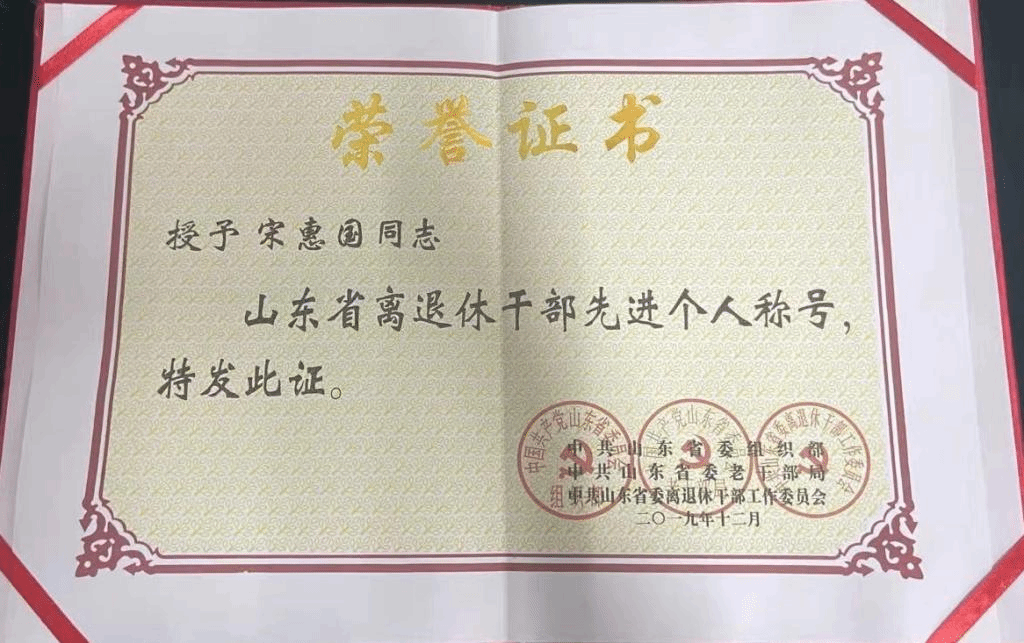 荣誉证书
授予 宋惠国同志
山东省离退休干部先进个人称号，
特发此证。
中共山东省委组织部
中共山东省委老干部局
中共山东省委离退休干部工作委员会
二〇一九年十二月
中国共产党山东省委员会
组